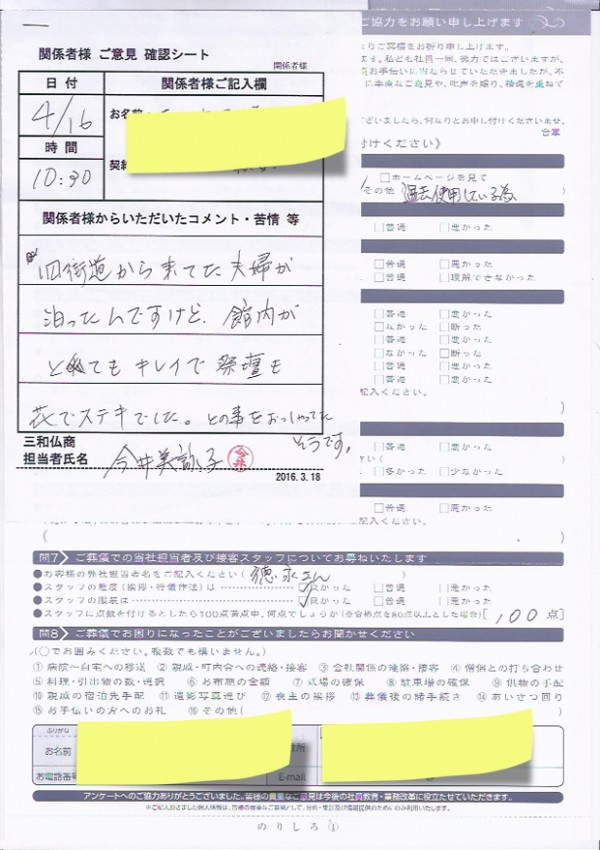 ご協力をお願い申し上げます
関係者様 ご意見 確認シート
関係者様
日付
関係者様ご記入欄
4/16
お名前
時間
10:30
契約
付けください》
□ホームページを見て
その他 過去使用している為 )
関係者様からいただいたコメント・苦情 等
旧街道から来てた夫婦が
泊ったんですけど、館内が
とてもキレイで祭壇も
花でステキでした。との事をおっしゃってた
そうです。
三和仏商
担当者氏名
2016.3.18
□普通 □悪かった
□普通 □悪かった
□普通 □理解できなかった
□普通 □悪かった
□なかった □断った
□普通 □悪かった
□なかった □断った
□普通 □悪かった
□普通 □悪かった
記入ください。
)
□普通 □悪かった
□多かった □少なかった
□普通 □悪かった
記入ください。
問7 ご葬儀での当社担当者及び接客スタッフについてお尋ねいたします
●お客様の弊社担当者名をご記入ください( 徳永さん )
●スタッフの態度(挨拶・行儀作法)は 良かった □普通 □悪かった
●スタッフの服装は 良かった □普通 □悪かった
●スタッフに点数を付けるとしたら100点満点中、何点でしょうか(※合格点を80点以上とした場合)[ 100 点]
問8 ご葬儀でお困りになったことがございましたらお聞かせください
(○でお囲みください。複数でも構いません。)
①病院〜自宅への移送 ②親戚・町内会への連絡・接客 ③会社関係の連絡・接客 ④僧侶との打ち合わせ
⑤料理・引出物の数・選択 ⑥お布施の金額 ⑦式場の確保 ⑧駐車場の確保 ⑨供物の手配
⑩親戚の宿泊先手配 ⑪遺影写真選び ⑫喪主の挨拶 ⑬葬儀後の諸手続き ⑭あいさつ回り
⑮お手伝いの方へのお礼 ⑯その他( )
ふりがな
お名前
お電話番号
E-mail
アンケートへのご協力ありがとうございました。皆様の貴重なご意見は今後の社員教育・業務改革に役立たせていただきます。
のりしろ①